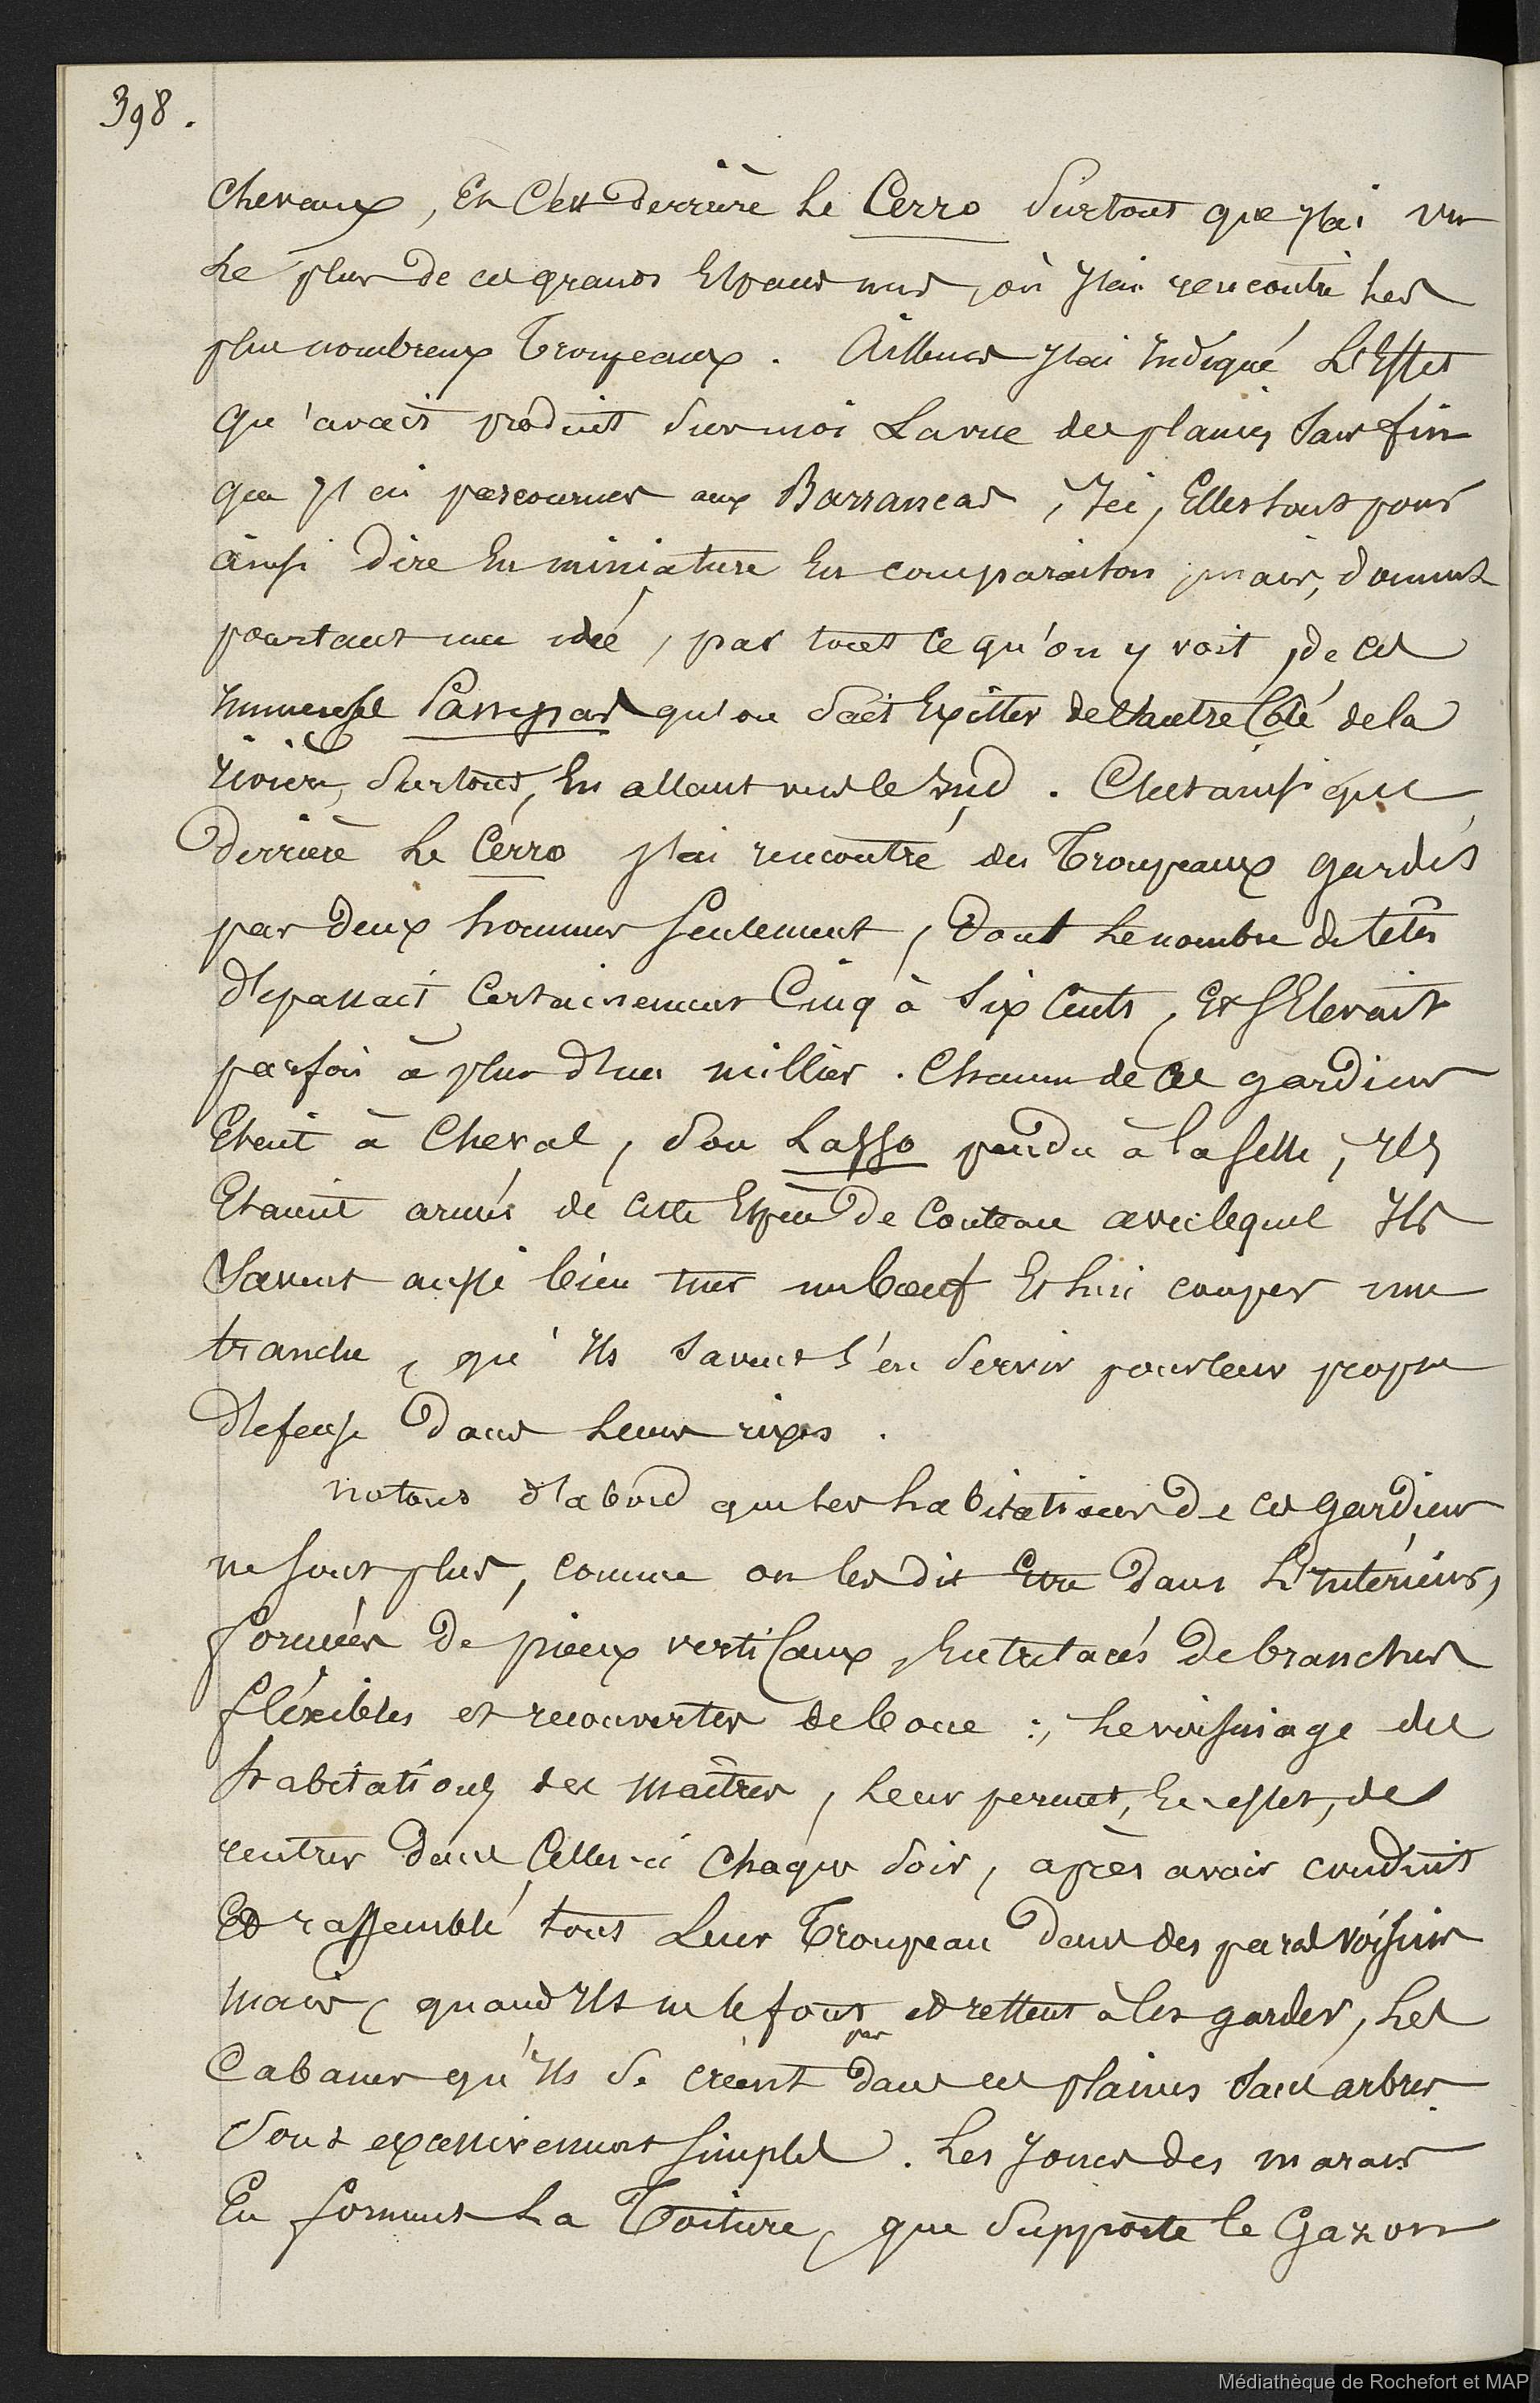 398.
chevaux, Et C'est Derrière Le Cerro Surtout que j'ai vu
Le plus de ces grands Espaces nus, où j'ai rencontré Les
plus nombreux Troupeaux. Ailleurs j'ai Indiqué L'Effet
qu'avait produit Sur moi La vue des plaines Sans fin
que j'ai parcourues aux Barrancas, Ici, Elles sont pour
ainsi Dire En miniature En comparaison, mais, donnent
pourtant une idée, par tout ce qu'on y voit, de ces
Immenses Pampas qu'on Sait Exister de L'autre Côté de la
rivière, Surtout, En allant vers le Sud. C'est ainsi que
Derrière Le Cérro j'ai rencontré des Troupeaux gardés
par Deux hommes Seulement, Dont Le nombre de têtes
dépassait Certainement Cinq à Six Cents, Et S'Elevait
parfois à plus d'un millier. Chacun de Ces gardiens
Etait à Cheval, Son Lasso pendu à la Selle, Ils
Etaient armés de Cette Espèce De Couteau avec lequel Ils
Savent aussi bien tuer un bœuf Et Lui couper une
tranche, qu'Ils Savent S'en Servir pour leur propre
défense Dans Leurs rixes.
Notons d'abord que Les habitations De ces gardiens
ne sont plus, comme on les dit Etre Dans L'Intérieur,
formées De pieux vertiCaux, Entrelacés De branches
fléxibles et recouvertes de boue :, Le voisinage des
habitations des Maîtres, Leur permet, En effet, de
rentrer Dans Celles-ci Chaque Soir, après avoir conduit
Et rassemblé tout Leur Troupeau Dans des parcs voisins
Mais, quand Ils ne le font pas et restent à les garder, Les
Cabanes qu'Ils Se créent Dans ces plaines Sans arbres
Sont excessivement Simples. Les Joncs des marais
En forment La Toiture, que Supporte le Gazon
Médiathèque de Rochefort et MAP